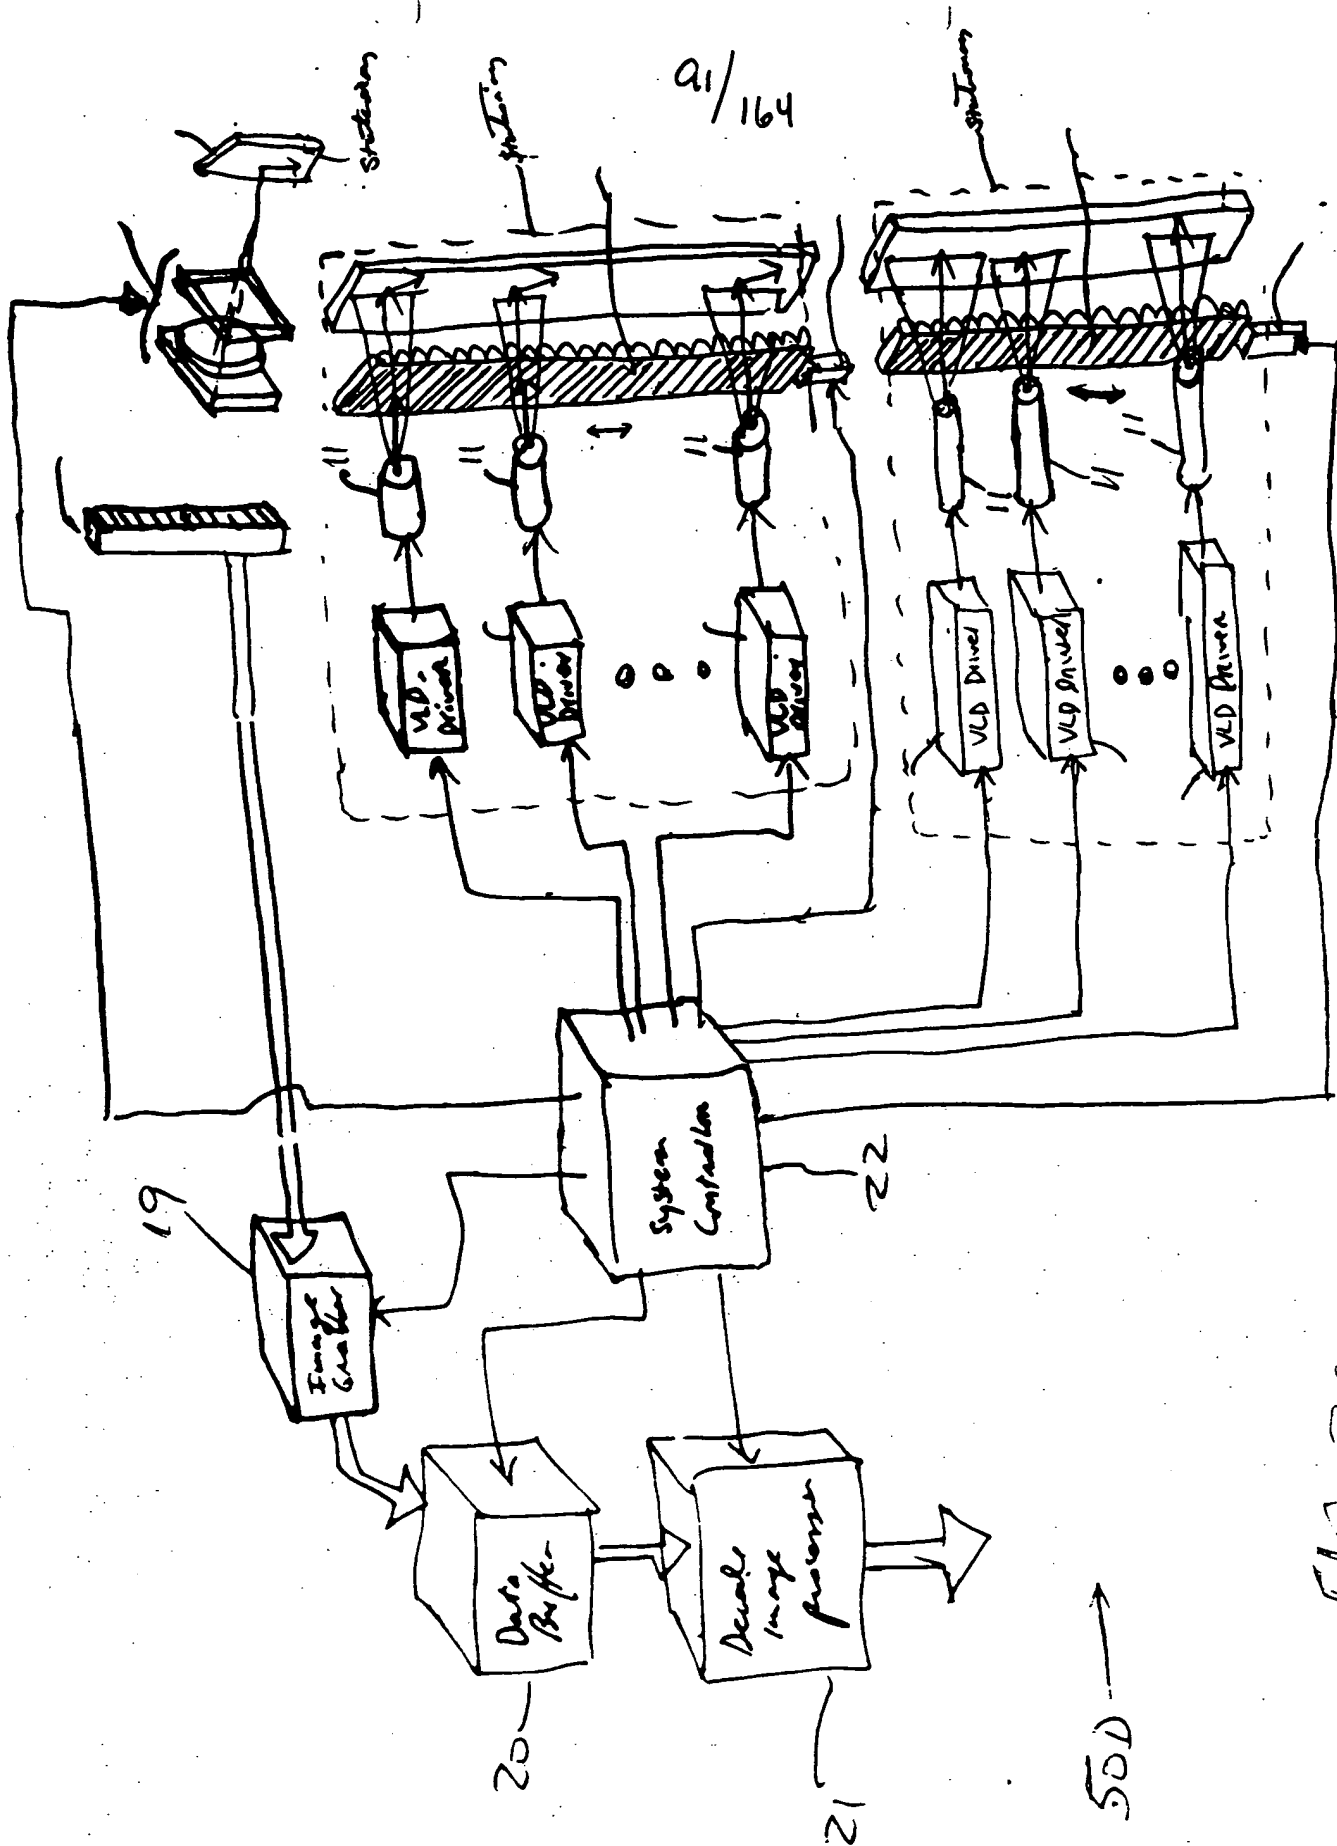 91/164
stationary
stationary
stationary
11
11
11
11
11
11
VLD
Driver
VLD
Driver
VLD
Driver
VLD Driver
VLD Driver
VLD Driver
19
Image
Grabber
System
Controller
22
Data
Buffer
20
Decode
image
processor
21
50D